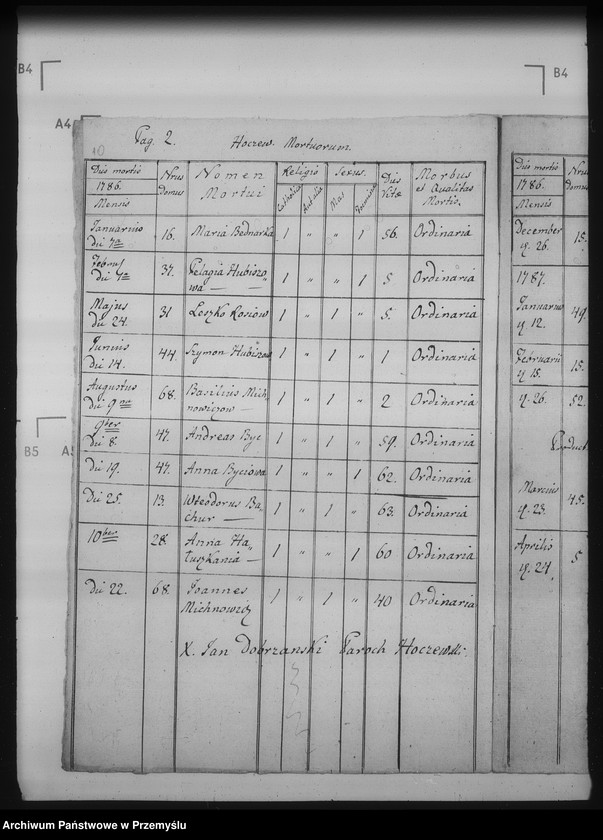 B4
B4
A4
Pag. 2. Hoczew. Mortuorum.
Dies mortis 1786. Mensis | Nrus Domus | Nomen Mortui | Religio Catholica | Sexus. Mas | Dies Vitæ | Morbus et Qualitas Mortis.
Januarius die 7ma 16. Maria Bednarka 1 " " 1 56. Ordinaria
die 7a 37. Pelagia Hubiszowa 1 " " 1 5 Ordinaria
Majus die 24. 31 Leszko Rosiow 1 " 1 " 5. Ordinaria
Junius die 14. 44. Szymon Hubiszow 1 " 1 " 1 Ordinaria
Augustus die 9na 68. Basilius Michnowiczow 1 " 1 " 2. Ordinaria
9ber die 8. 47. Andreas Byc 1 " 1 " 59. Ordinaria
Die 19. 47. Anna Byciowa 1 " " 1 62. Ordinaria
Die 25. 13. Wteodorus Bachur 1 " 1 " 63. Ordinaria
10ber 28. Anna Hatuszkania 1 " " 1 60 Ordinaria
Die 22. 68. Joannes Michnowicz 1 " 1 " 40 Ordinaria
X. Jan Dobrzanski Paroch Hoczewski.
B5
Dies mortis
1786.
Mensis
Nrus Domus
December
26. 15.
1787.
Januarius
12. 49.
Februarii
15. 15.
26. 52.
Product
Marcius
23. 45.
Aprilis
24. 5
Archiwum Państwowe w Przemyślu